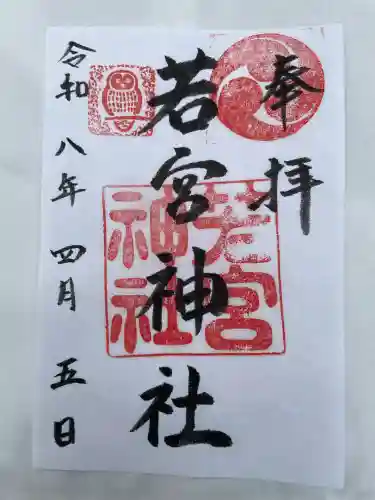 奉拝
若宮神社
若宮神社
令和八年四月五日